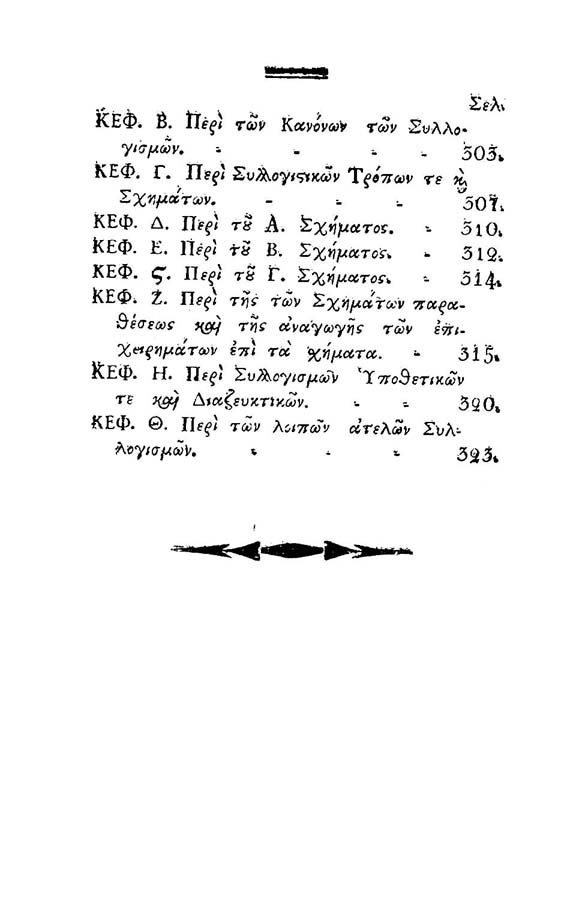 Σελ.
ΚΕΦ. Β. Περὶ τῶν Κανόνων τῶν Συλλο-
γισμῶν. - - - - 303.
ΚΕΦ. Γ. Περὶ Συλλογιϛικῶν Τρόπων τε ϗ̀
Σχημάτων. - - - 307.
ΚΕΦ. Δ. Περὶ τοῦ Α. Σχήματος. - 310.
ΚΕΦ. Ε. Περὶ τοῦ Β. Σχήματος. - 312.
ΚΕΦ. Ϛ. Περὶ τοῦ Γ. Σχήματος. - 314.
ΚΕΦ. Ζ. Περὶ τῆς τῶν Σχημάτων παρα-
θέσεως καὶ τῆς ἀναγωγῆς τῶν ἐπι-
χειρημάτων ἐπὶ τὰ χήματα. - 315.
ΚΕΦ. Η. Περὶ Συλλογισμῶν Ὑποθετικῶν
τε καὶ Διαζευκτικῶν. - - 320.
ΚΕΦ. Θ. Περὶ τῶν λοιπῶν ἀτελῶν Συλ-
λογισμῶν. - - - 323.